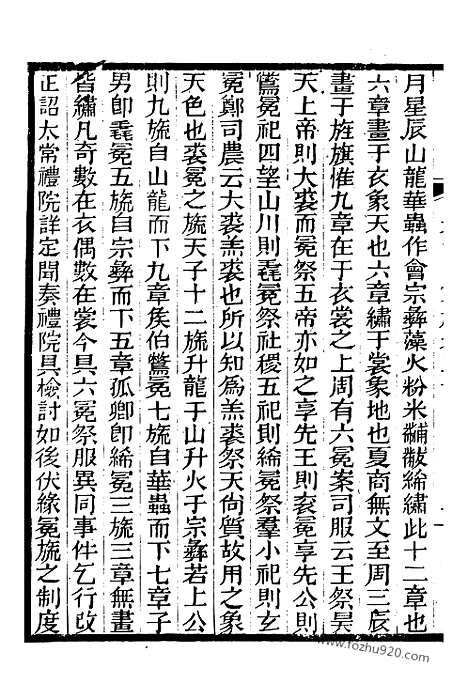 月星辰山龍華蟲作會宗彝藻火粉米黼黻絺繡此十二章也
六章畫于衣象天也六章繡于裳象地也夏商無文至周三辰
畫于旌旗惟九章在于衣裳之上周有六冕案司服云王祭昊
天上帝則大裘而冕祭五帝亦如之享先王則衮冕享先公則
鷩冕祀四望山川則毳冕祭社稷五祀則絺冕祭羣小祀則玄
冕鄭司農云大裘羔裘也所以知爲羔裘祭天尚質故用之象
天色也裘冕之旒天子十二旒升龍于山升火于宗彝若上公
則九旒自山龍而下九章矦伯鷩冕七旒自華蟲而下七章子
男卽毳冕五旒自宗彝而下五章孤卿卽絺冕三旒三章無畫
皆繡凡奇數在衣偶數在裳今具六冕祭服異同事件乞行改
正詔太常禮院詳定聞奏禮院具檢討如後伏緣冕旒之制度
www.fozhu920.com